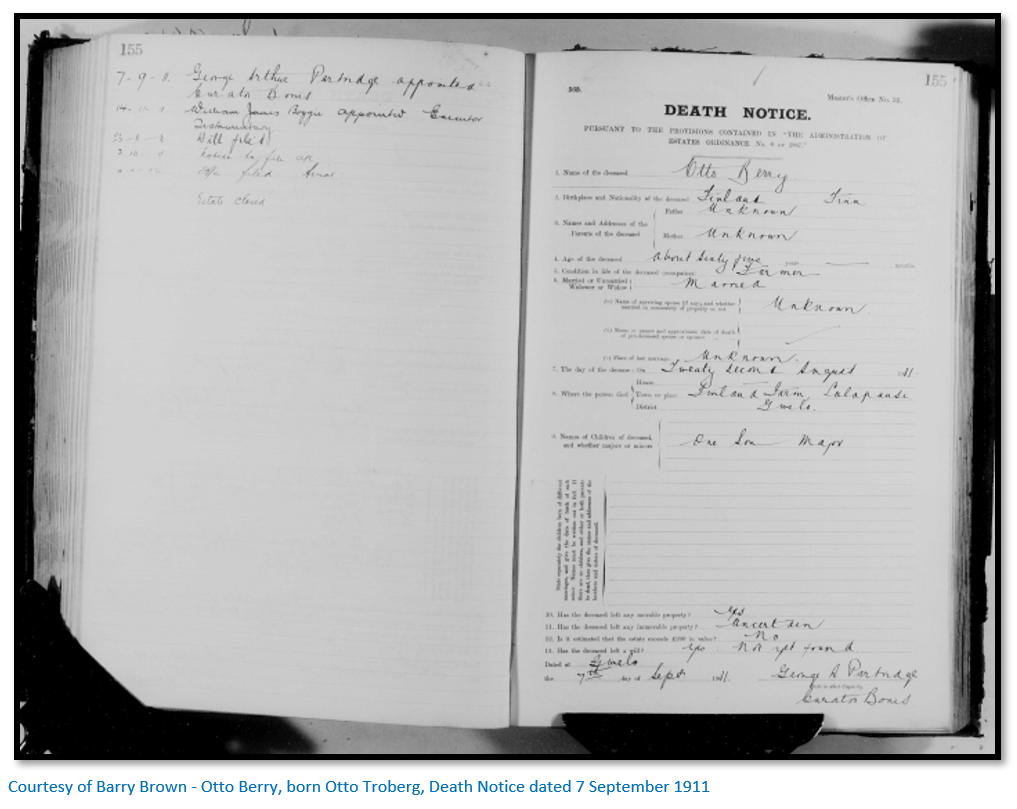 155
7-9-11. George Arthur Partridge appointed
Curator Bonis
William James Boggie appointed Executor
Testamentary
Will filed
filed
Estate closed
155
Master's Office No.
DEATH NOTICE.
PURSUANT TO THE PROVISIONS CONTAINED IN "THE ADMINISTRATION OF
ESTATES ORDINANCE No. 6 OF 1907."
1. Name of the deceased Otto Berry
2. Birthplace and Nationality of the deceased Finland Finn
3. Names and Addresses of the Parents of the deceased
Father Unknown
Mother Unknown
4. Age of the deceased About Sixty five years months
5. Condition in life of the deceased (occupation) Farmer
6. Married or Unmarried Widower or Widow Married
(a) Name of surviving spouse (if any) and whether married in community of property or not Unknown
(b) Name or names and approximate date of death of pre-deceased spouse or spouses
(c) Place of last marriage Unknown
7. The day of the decease: On Twenty Second August 1911
8. Where the person died
House
Town or place Finland Farm, Lalapansi
District Gwelo.
9. Names of Children of deceased, and whether majors or minors One Son Major
State separately the children born of different marriages, and give the date of birth of each minor. Names must be written out in full. If there are no children, and either or both parents be dead, then give the names and addresses of the brothers and sisters of deceased.
10. Has the deceased left any movable property? Yes
11. Has the deceased left any immovable property? Uncertain
12. Is it estimated that the estate exceeds £100 in value? No
13. Has the deceased left a will? Yes. Not yet found
Dated at Gwelo
the 7th day of Sept 1911. George A Partridge
Curator Bonis
Courtesy of Barry Brown - Otto Berry, born Otto Troberg, Death Notice dated 7 September 1911